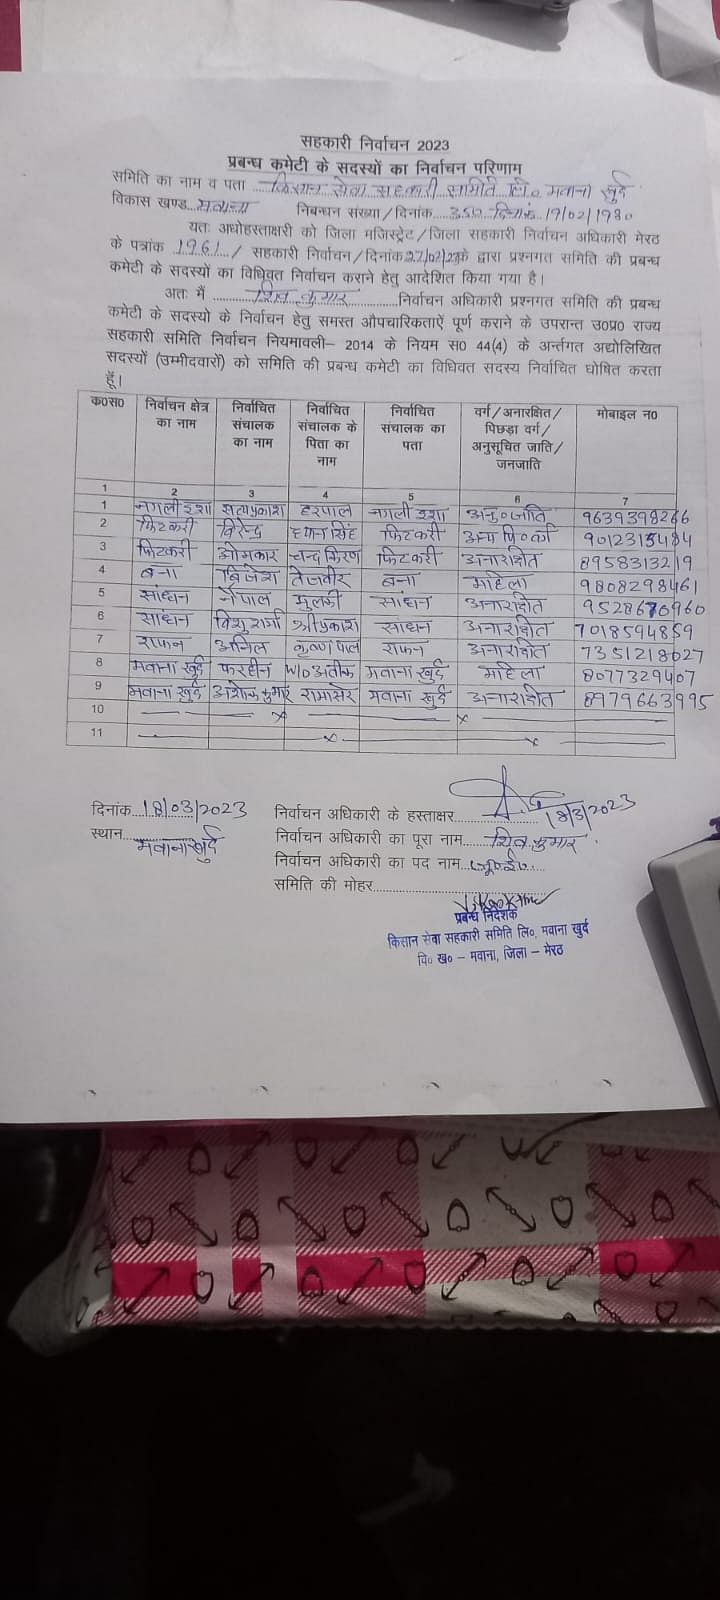 सहकारी निर्वाचन 2023
प्रबन्ध कमेटी के सदस्यों का निर्वाचन परिणाम
समिति का नाम व पता ...किसान सेवा सहकारी समिति लि० मवाना खुर्द
विकास खण्ड...मवाना निबन्धन संख्या/दिनांक....350 दिनांक 19/02/1980
यतः अधोहस्ताक्षरी को जिला मजिस्ट्रेट/जिला सहकारी निर्वाचन अधिकारी मेरठ
के पत्रांक 1961 / सहकारी निर्वाचन/दिनांक 27/02/23 के द्वारा प्रश्नगत समिति की प्रबन्ध
कमेटी के सदस्यों का विधिवत निर्वाचन कराने हेतु आदेशित किया गया है।
अतः मैं ......शिव कुमार......निर्वाचन अधिकारी प्रश्नगत समिति की प्रबन्ध
कमेटी के सदस्यो के निर्वाचन हेतु समस्त औपचारिकताऐं पूर्ण कराने के उपरान्त उ०प्र० राज्य
सहकारी समिति निर्वाचन नियमावली– 2014 के नियम स0 44(4) के अर्न्तगत अद्योलिखित
सदस्यों (उम्मीदवारों) को समिति की प्रबन्ध कमेटी का विधिवत सदस्य निर्वाचित घोषित करता
हूँ।
क0स0 निर्वाचन क्षेत्र का नाम निर्वाचित संचालक का नाम निर्वाचित संचालक के पिता का नाम निर्वाचित संचालक का पता वर्ग/अनारक्षित/पिछड़ा वर्ग/अनुसूचित जाति/जनजाति मोबाइल न0
1 2 3 4 5 6 7
1 नगली ईशा सत्यप्रकाश हरपाल नगली ईशा अनु०जाति 9639398266
2 फिटकरी विरेन्द्र ध्यान सिंह फिटकरी अन्य पि०वर्ग 9012315484
3 फिटकरी ओमकार चन्द्र किरण फिटकरी अनारक्षित 8958313219
4 बना बिजेश तेजवीर बना महिला 9808298461
5 सांधन नेपाल मुलकी सांधन अनारक्षित 9528676960
6 सांधन विशु शर्मा श्रीप्रकाश सांधन अनारक्षित 7018594859
7 राफन अनिल कृष्ण पाल राफन अनारक्षित 7351218027
8 मवाना खुर्द फरहीन W/o अतीक मवाना खुर्द महिला 8077329407
9 मवाना खुर्द अशोक कुमार रामासरे मवाना खुर्द अनारक्षित 8979663995
10
11
दिनांक..18/03/2023 निर्वाचन अधिकारी के हस्ताक्षर 18/3/2023
स्थान...मवाना खुर्द निर्वाचन अधिकारी का पूरा नाम....शिव कुमार
निर्वाचन अधिकारी का पद नाम..
समिति की मोहर
प्रबन्ध निदेशक
किसान सेवा सहकारी समिति लि०, मवाना खुर्द
वि० ख० – मवाना, जिला – मेरठ